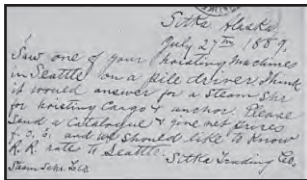 Sitka Alaska
July 27th 1889.
Saw one of your hoisting Machines
in Seattle on a pile driver. Think
it would answer for a Steam Shr
for hoisting Cargo & anchor. Please
Send a Catalogue & give net prices
f.o.b. and we should like to know
R.R. rate to Seattle.
Sitka Trading Co.
Steam Schr. Leo.